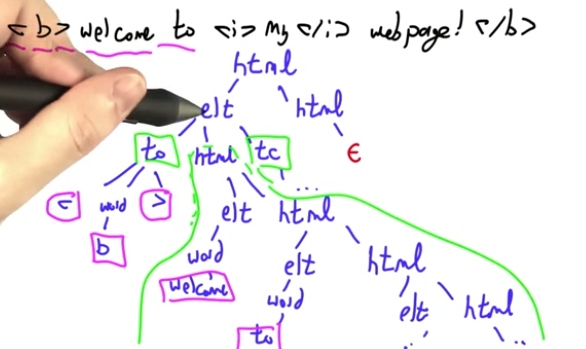 <b> welcome to <i> my </i> webpage! </b>
html
elt html
to html tc ε
< word > ...
b elt html
word elt html
welcome word elt html
to .. ..